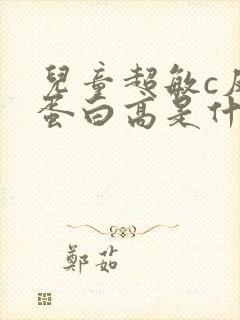 兒童超敏c反
蛋白高是什
鄭茹